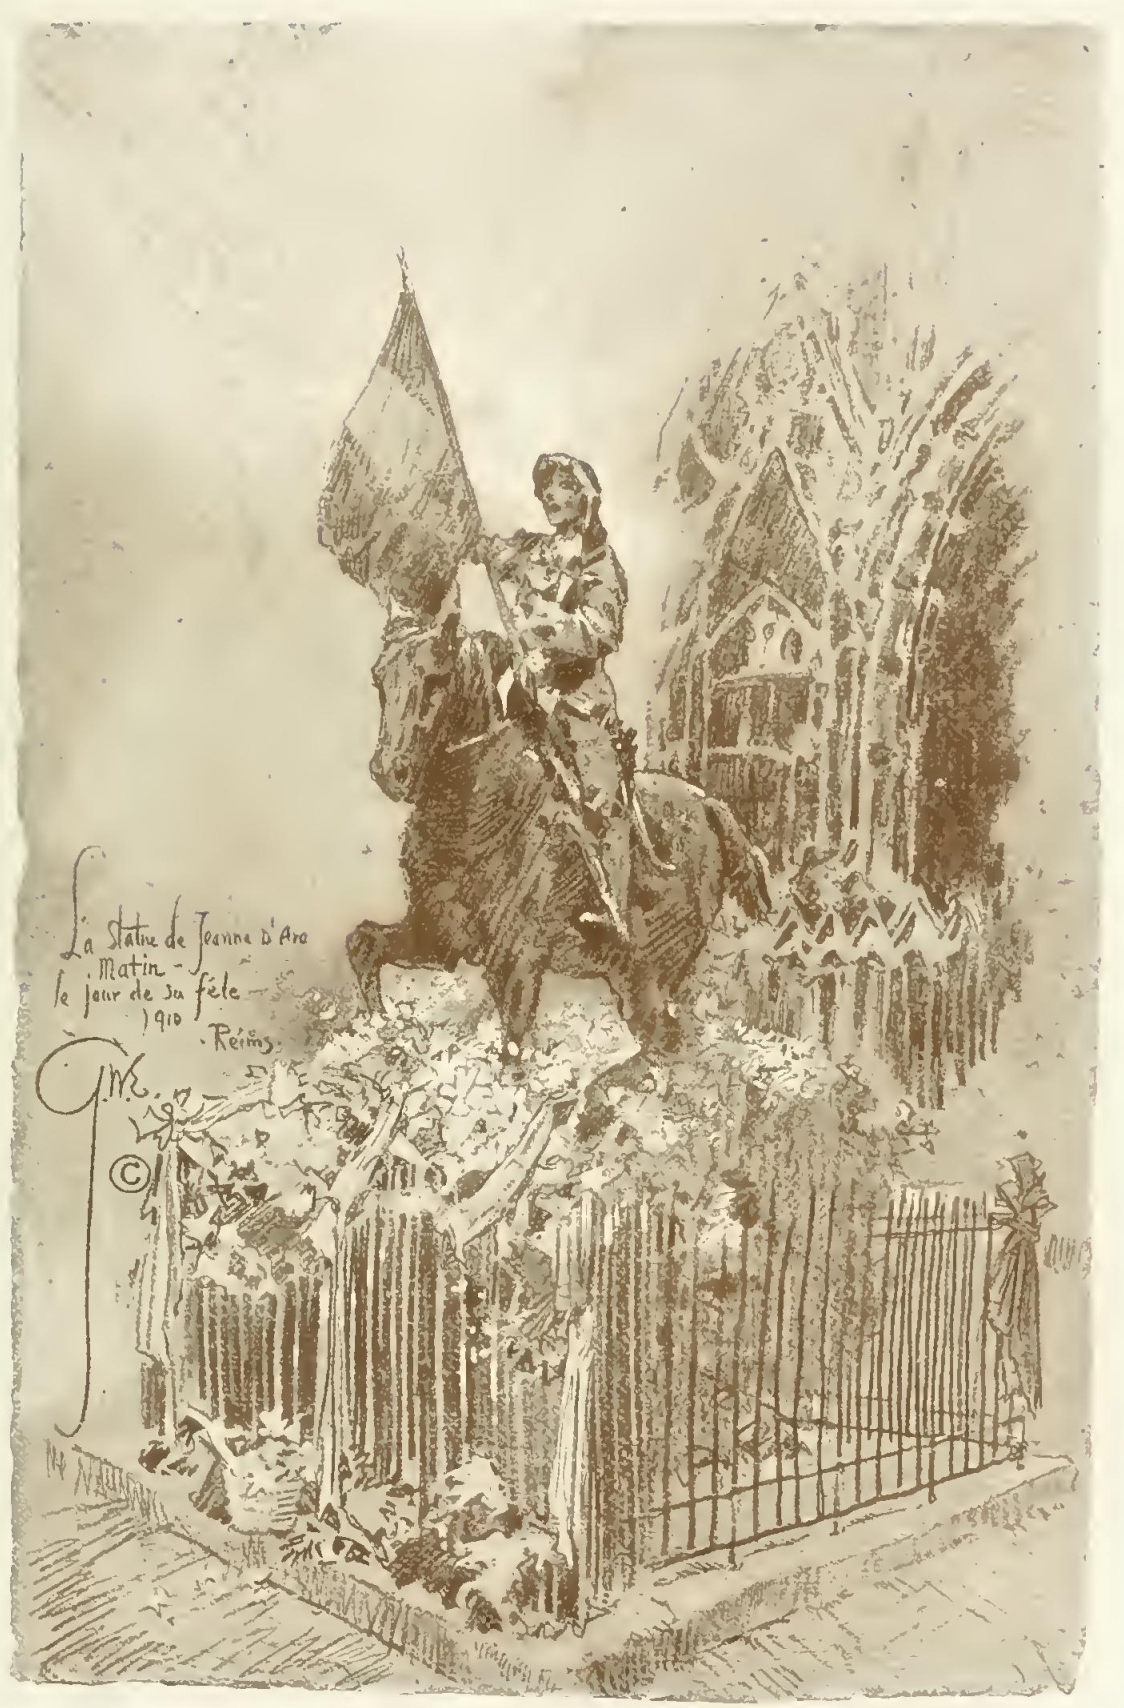 La Statue de Jeanne D'Arc
Matin -
le jour de sa fête
1910
· Reims ·
G.W.E.
©